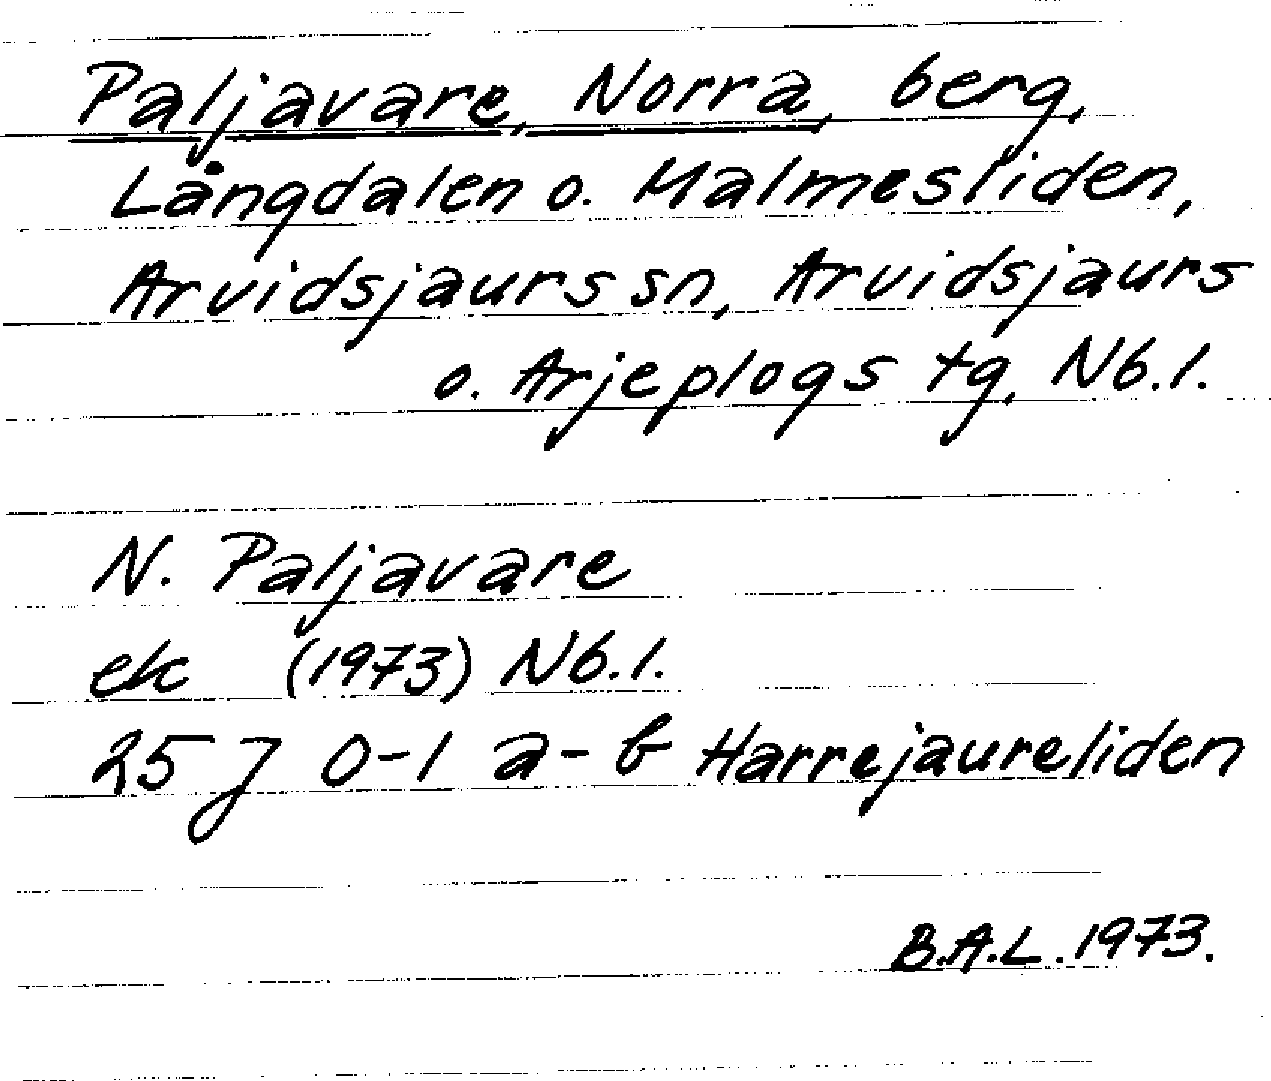 Paljavare, Norra, berg,
Långdalen o. Malmesliden,
Arvidsjaurs sn, Arvidsjaurs
o. Arjeplogs tg, Nb.l.
N. Paljavare
ek (1973) Nb.l.
25 J 0-1 a-b Harrejaureliden
B.A.L. 1973.